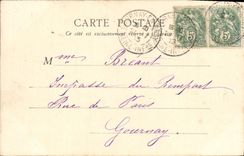 CARTE POSTALE
Ce côté est exclusivement réservé à l'adresse
M me Bréant
Impasse du Rempart
Rue de Paris
Gournay